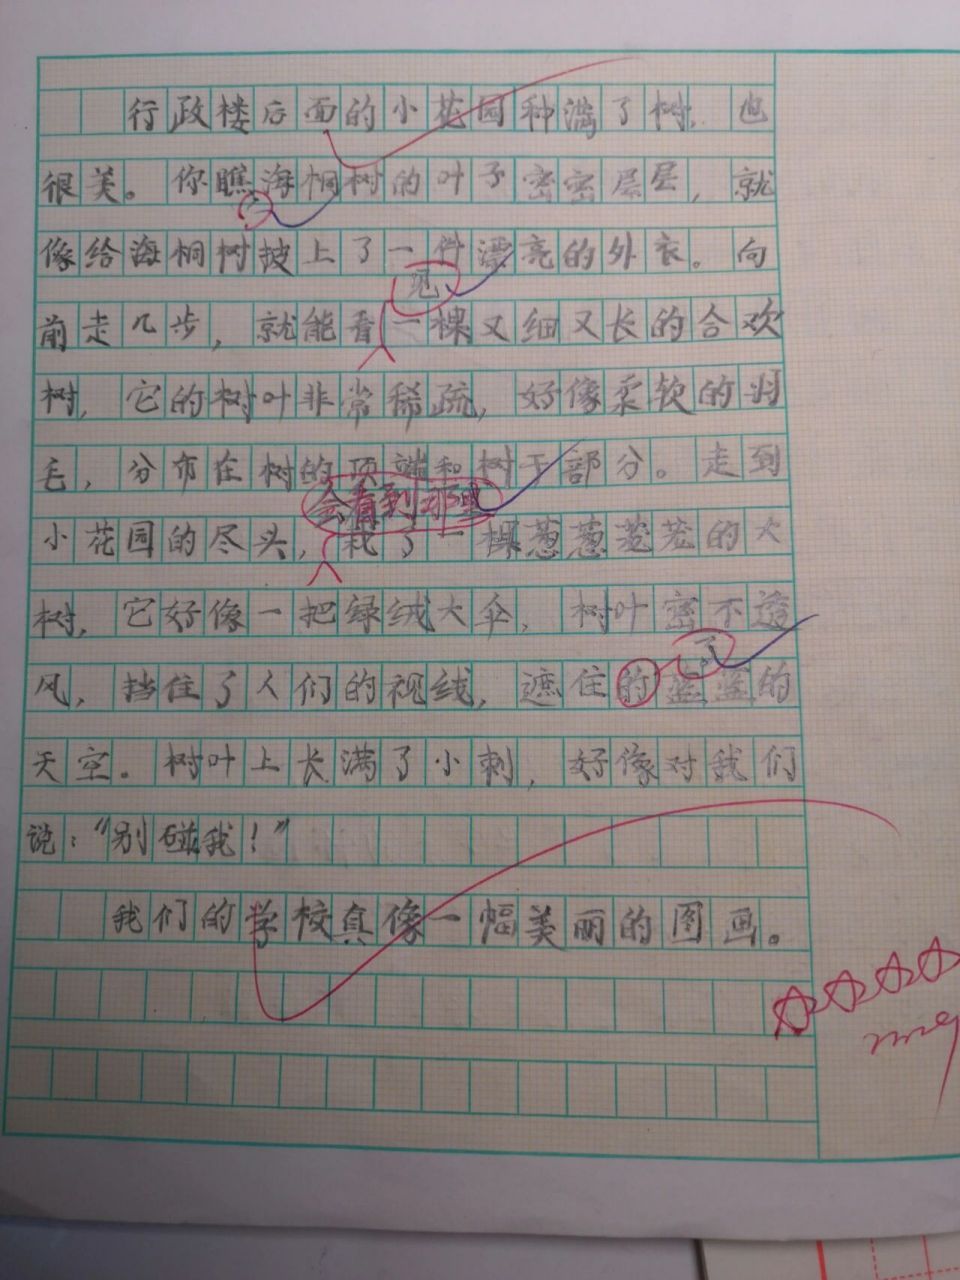 行政楼后面的小花园种满了树,也
很美。你瞧海桐树的叶子密密层层,就
,
像给海桐树披上了一件漂亮的外衣。向
见
前走几步,就能看一棵又细又长的合欢
树,它的树叶非常稀疏,好像柔软的羽
毛,分布在树的顶端和树干部分。走到
会看到那里
小花园的尽头,栽了一棵葱葱茏茏的大
树,它好像一把绿绒大伞,树叶密不透
了
风,挡住了人们的视线,遮住的蓝蓝的
天空。树叶上长满了小刺,好像对我们
说:“别碰我!”
我们的学校真像一幅美丽的图画。